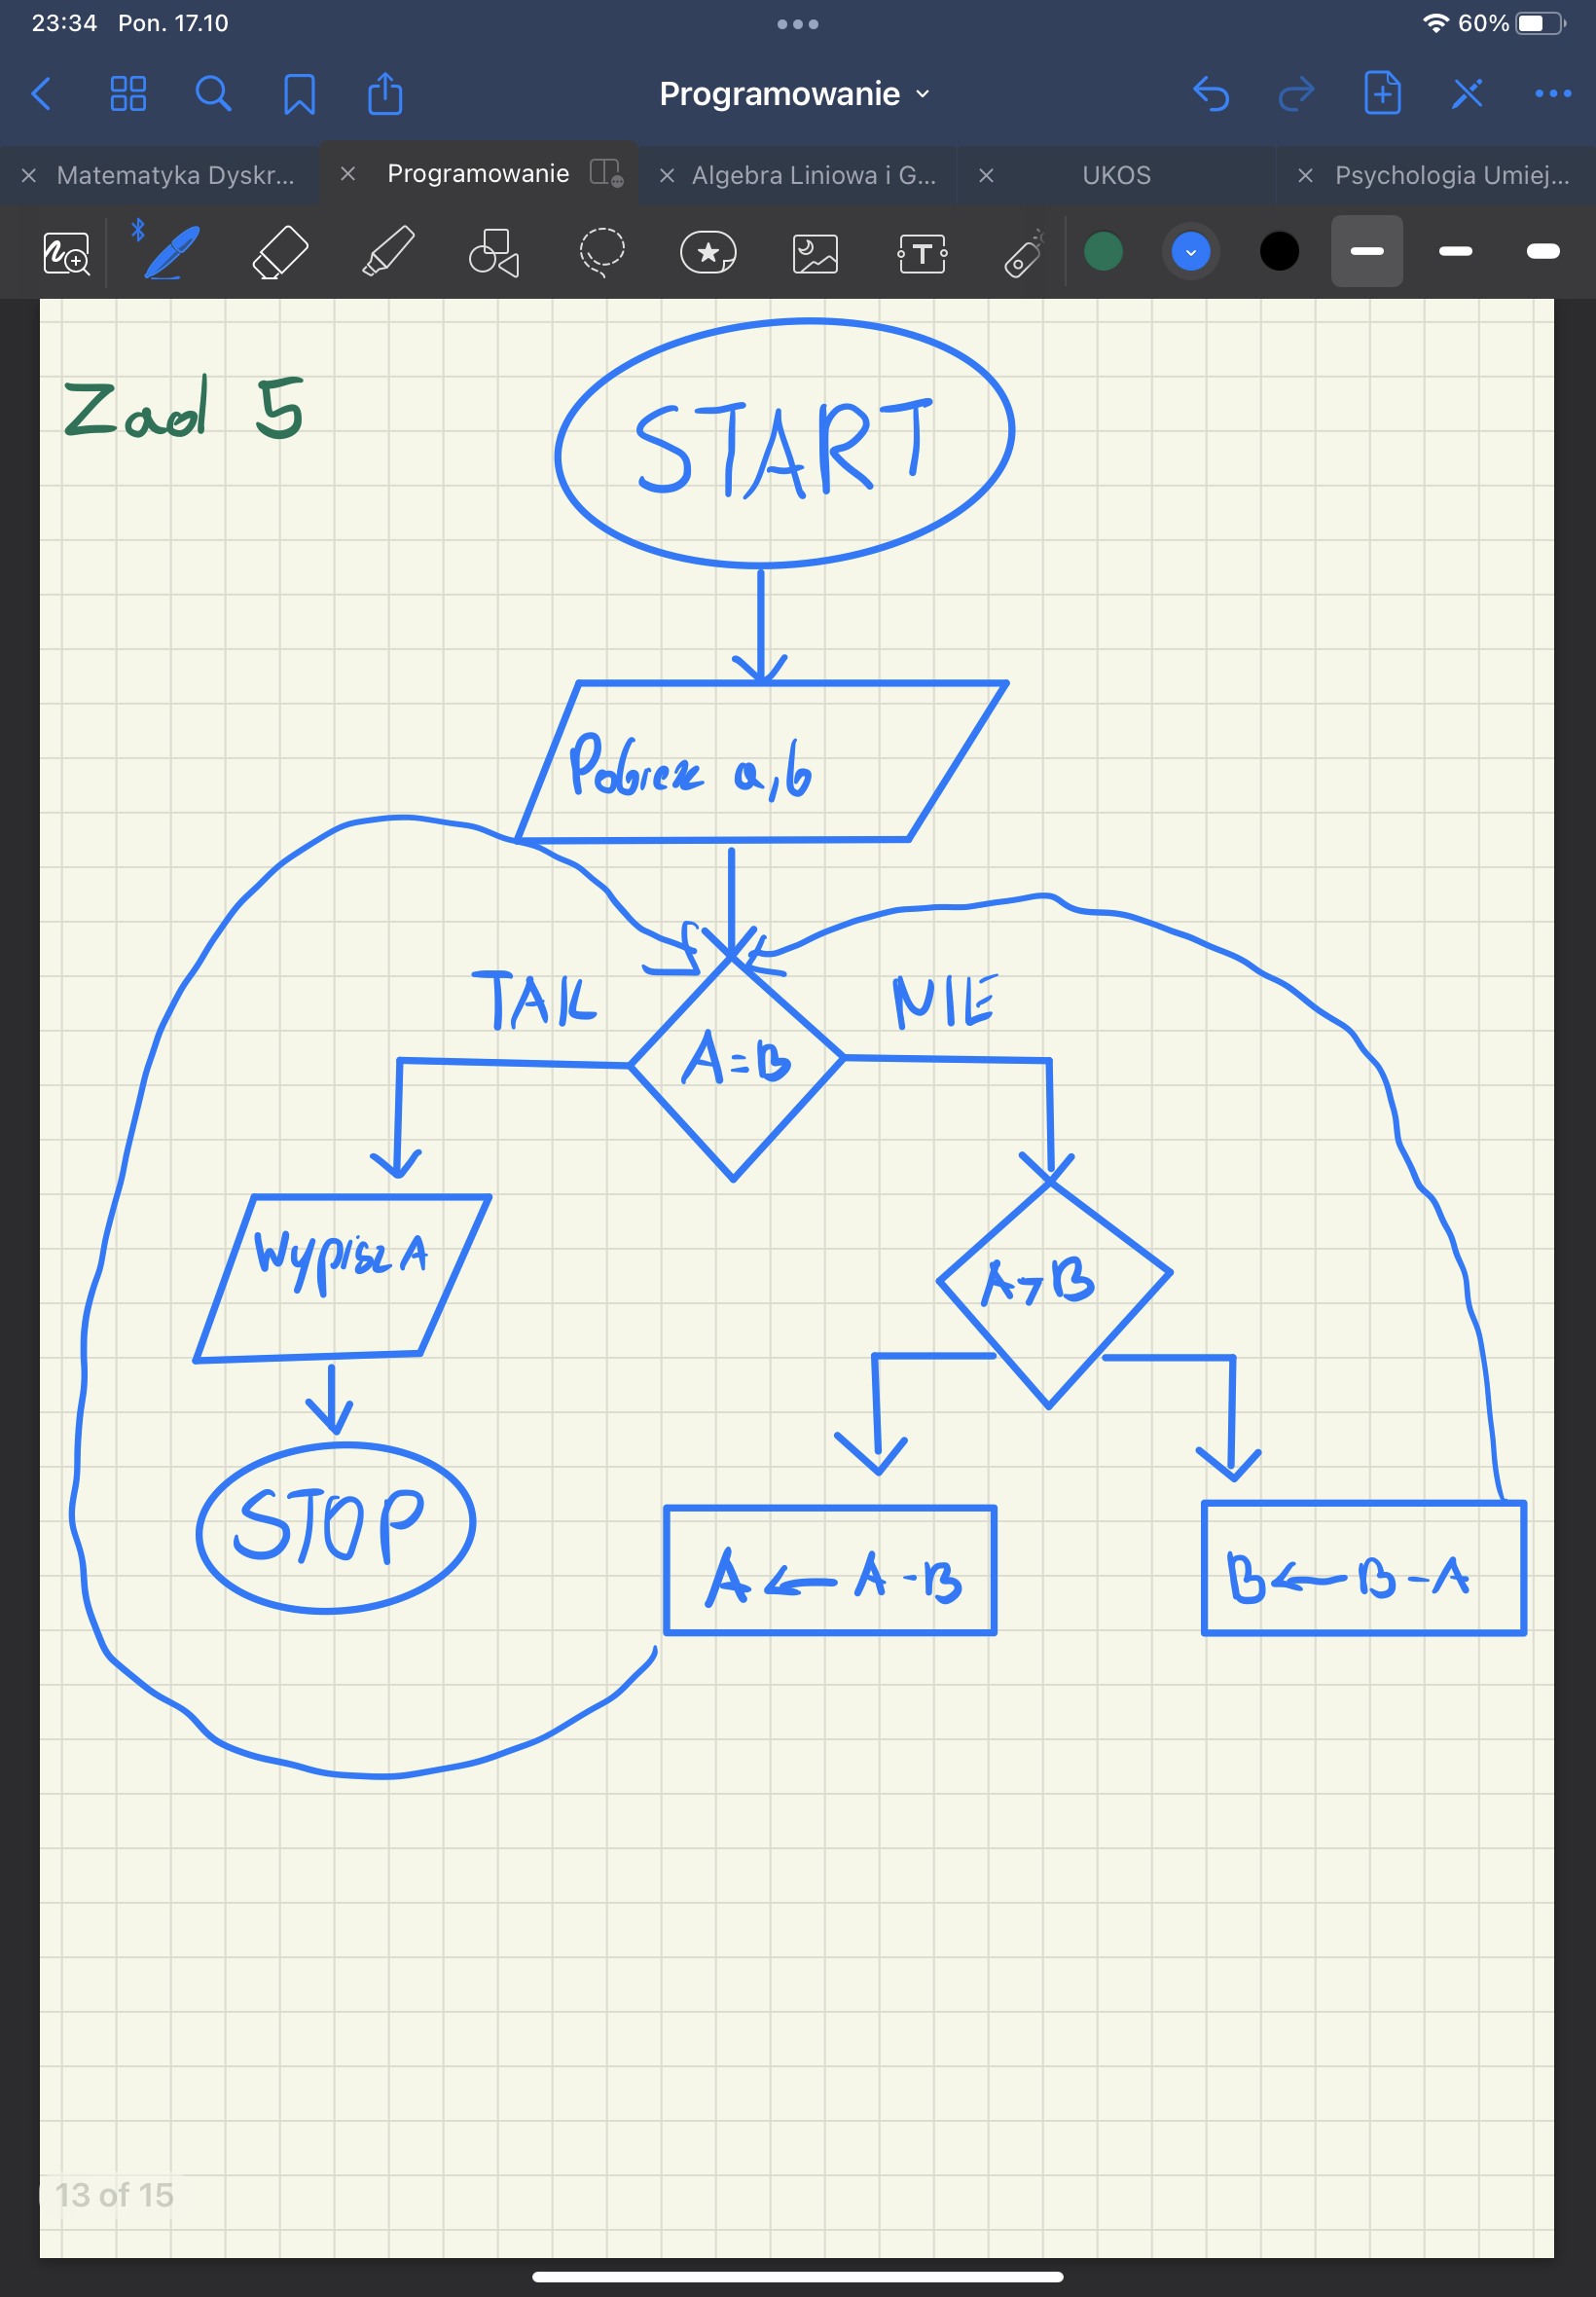 23:34 Pon. 17.10
60%
Programowanie
Matematyka Dyskr...
Programowanie
Algebra Liniowa i G...
UKOS
Psychologia Umiej...
T
Zad 5
START
Pobierz a,b
TAK
NIE
A=B
Wypisz A
A>B
STOP
A ← A-B
B ← B-A
13 of 15